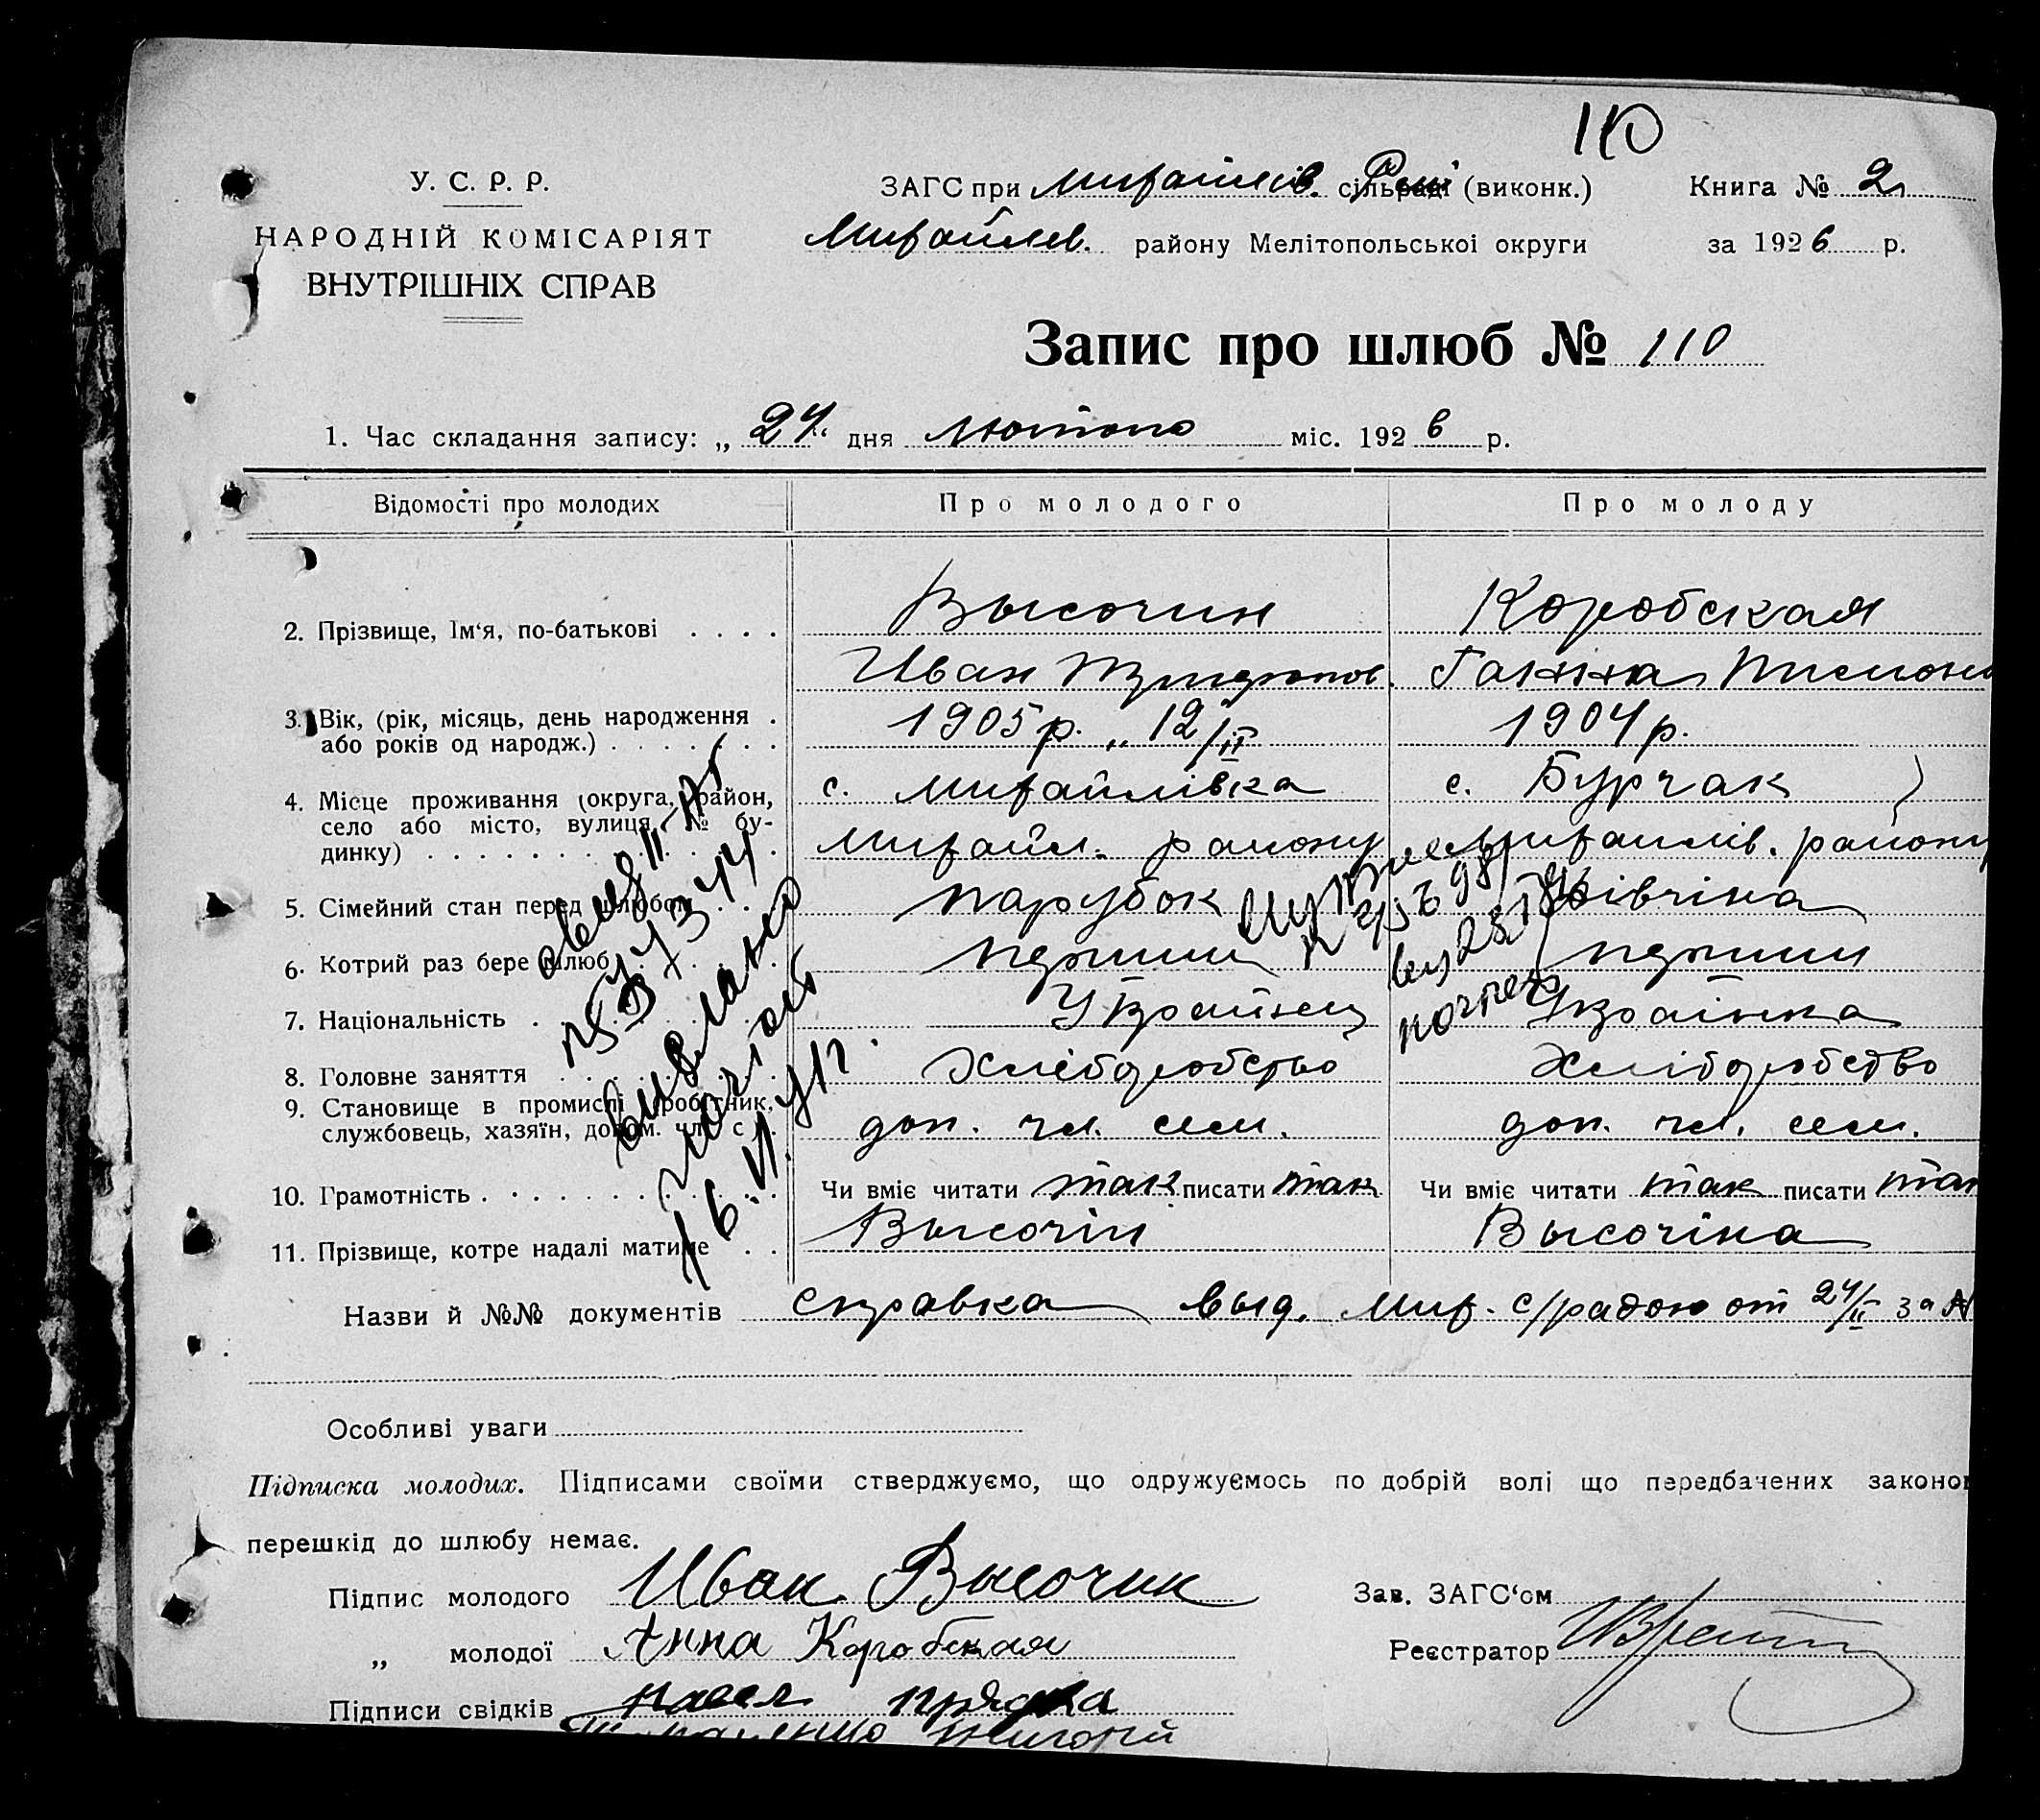 110
У. С. Р. Р.
НАРОДНІЙ КОМІСАРІЯТ
ВНУТРІШНІХ СПРАВ
ЗАГС при Михайлів. сільраді (виконк.) Книга № 2
Михайлов. району Мелітопольської округи за 1926 р.
Запис про шлюб № 110
1. Час складання запису: „ 24 " дня лютого міс. 1926 р.
Відомості про молодих Про молодого Про молоду
2. Прізвище, Ім'я, по-батькові . . . . Высочин Коробская
Иван Ганна
3. Вік, (рік, місяць, день народження . 1905 р. „ 12/II 1904 р.
або років од народж.) . . . . . . .
4. Місце проживання (округа, район, с. Михайлівка с. Бурчак
село або місто, вулиця, № бу-
динку) . . . . . . . . . . . . Михайл. району Михайлів. району
5. Сімейний стан перед шлюбом . . парубок дівчіна
6. Котрий раз бере шлюб . . . . перший перший
7. Національність . . . . . . Українец Українка
8. Головне заняття . . . . . . Хліборобство Хліборобство
9. Становище в промислі (робітник,
службовець, хазяїн, допом. чл. с . доп. чл. сем. доп. чл. сем.
10. Грамотність . . . . . . . . . Чи вміє читати так писати так Чи вміє читати так писати так
11. Прізвище, котре надалі матиме . . Высочін Высочіна
Назви й №№ документів справка выд. Мих. с/радою от 24/II за №
выслано
почтою
Особливі уваги
Підписка молодих. Підписами своїми стверджуємо, що одружуємось по добрій волі що передбачених законом
перешкід до шлюбу немає.
Підпис молодого Иван Высочин Зав. ЗАГС'ом
„ молодої Анна Коробская Реєстратор
Підписи свідків